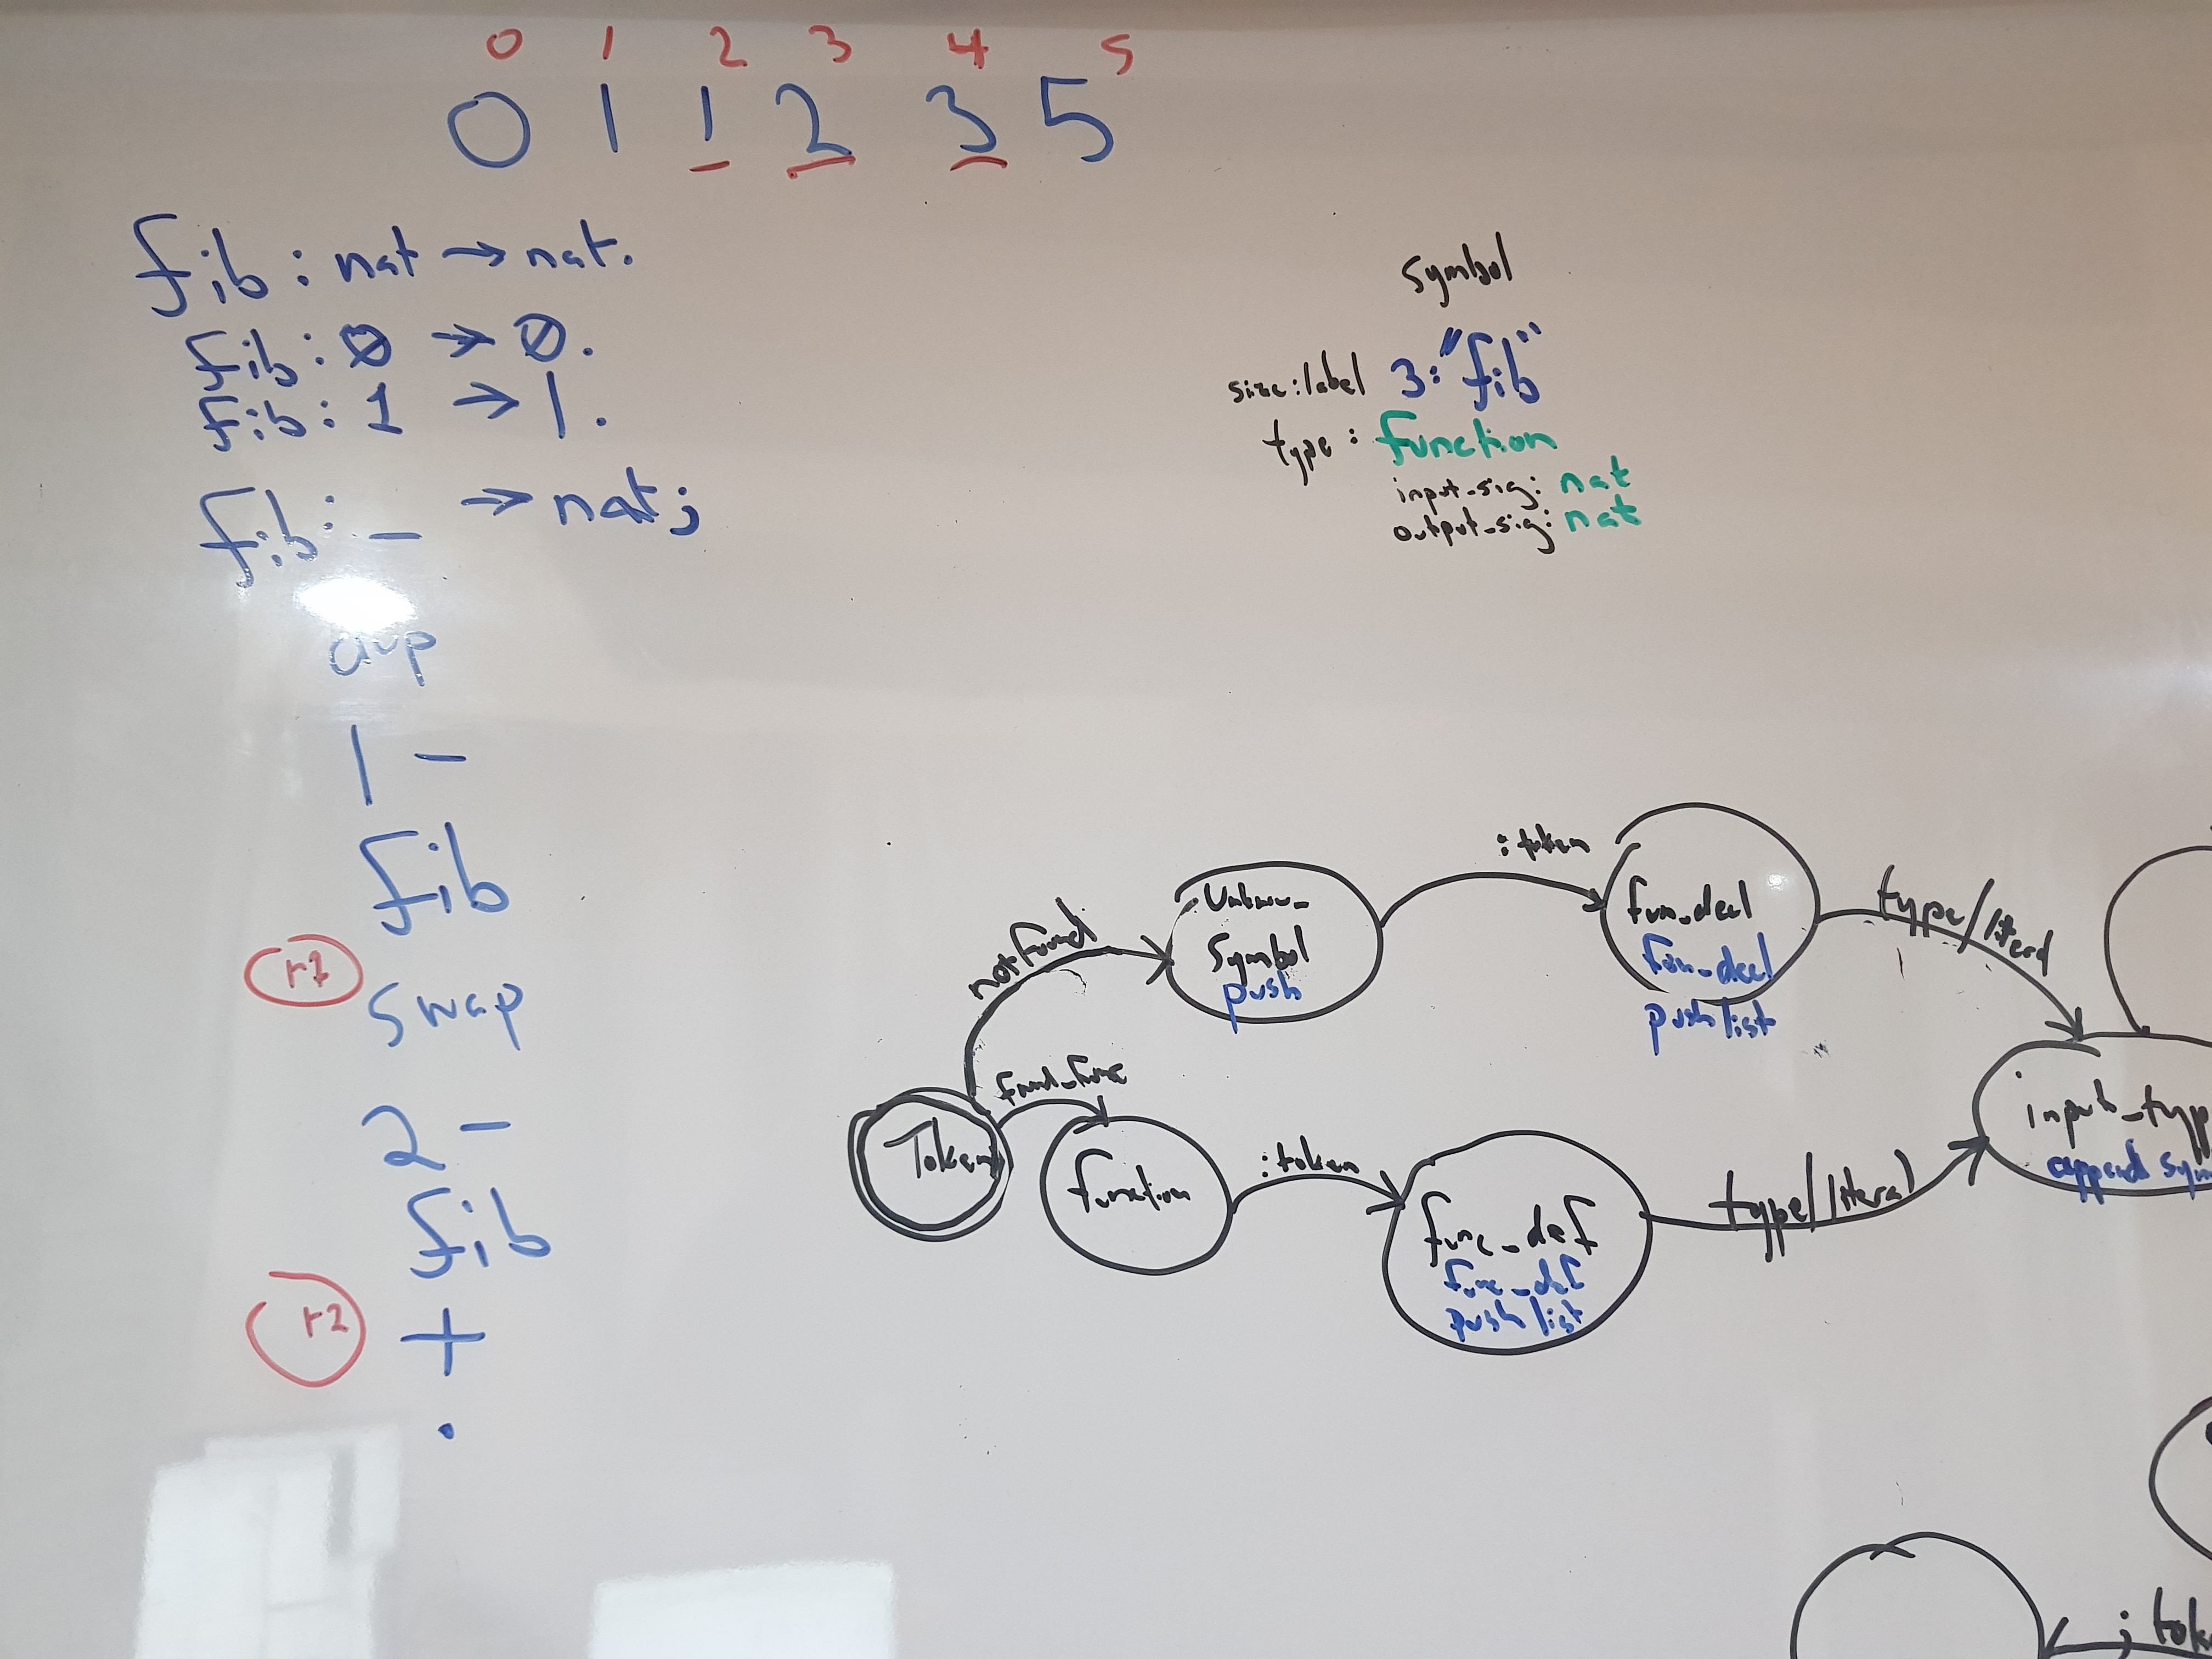 0 1 2 3 4 5
0 1 1 2 3 5
fib : nat → nat.
fib : 0 → 0.
fib : 1 → 1.
fib : _ → nat;
dup
1 -
fib
r1
swap
2 -
fib
r2
+
.
symbol
size:label 3:"fib"
type : function
input_sig: nat
output_sig: nat
Token
not found
symbol
push
:token
fun_decl
fun_decl
push list
type/literal
function
:token
func_def
func_def
push list
type/literal
input_typ
append sym
; tok